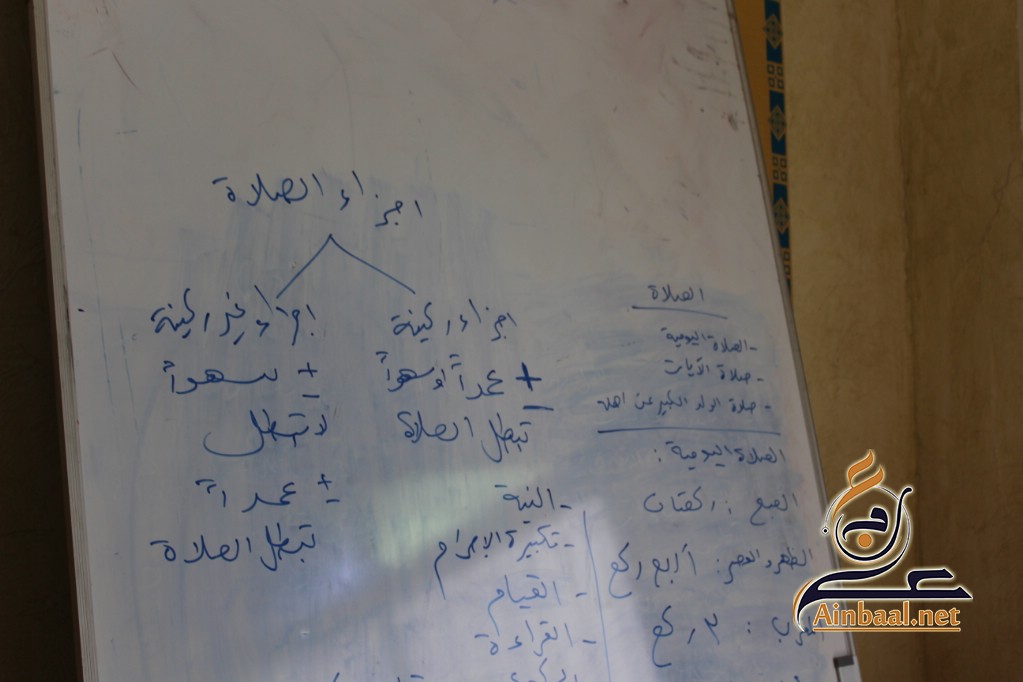 اجزاء الصلاة
اجزاء ركينة
± عمداً او سهواً
تبطل الصلاة
- النية
- تكبيرة الإحرام
- القيام
- القراءة
اجزاء غير ركينة
± سهواً
لا تبطل
± عمداً
تبطل الصلاة
الصلاة
- الصلاة اليومية
- صلاة الآيات
- صلاة الولد الكبير عن اهله
الصلاة اليومية :
الصبح : ركعتان
الظهر والعصر : أربع ركع
: ٣ ركع
Ainbaal.net